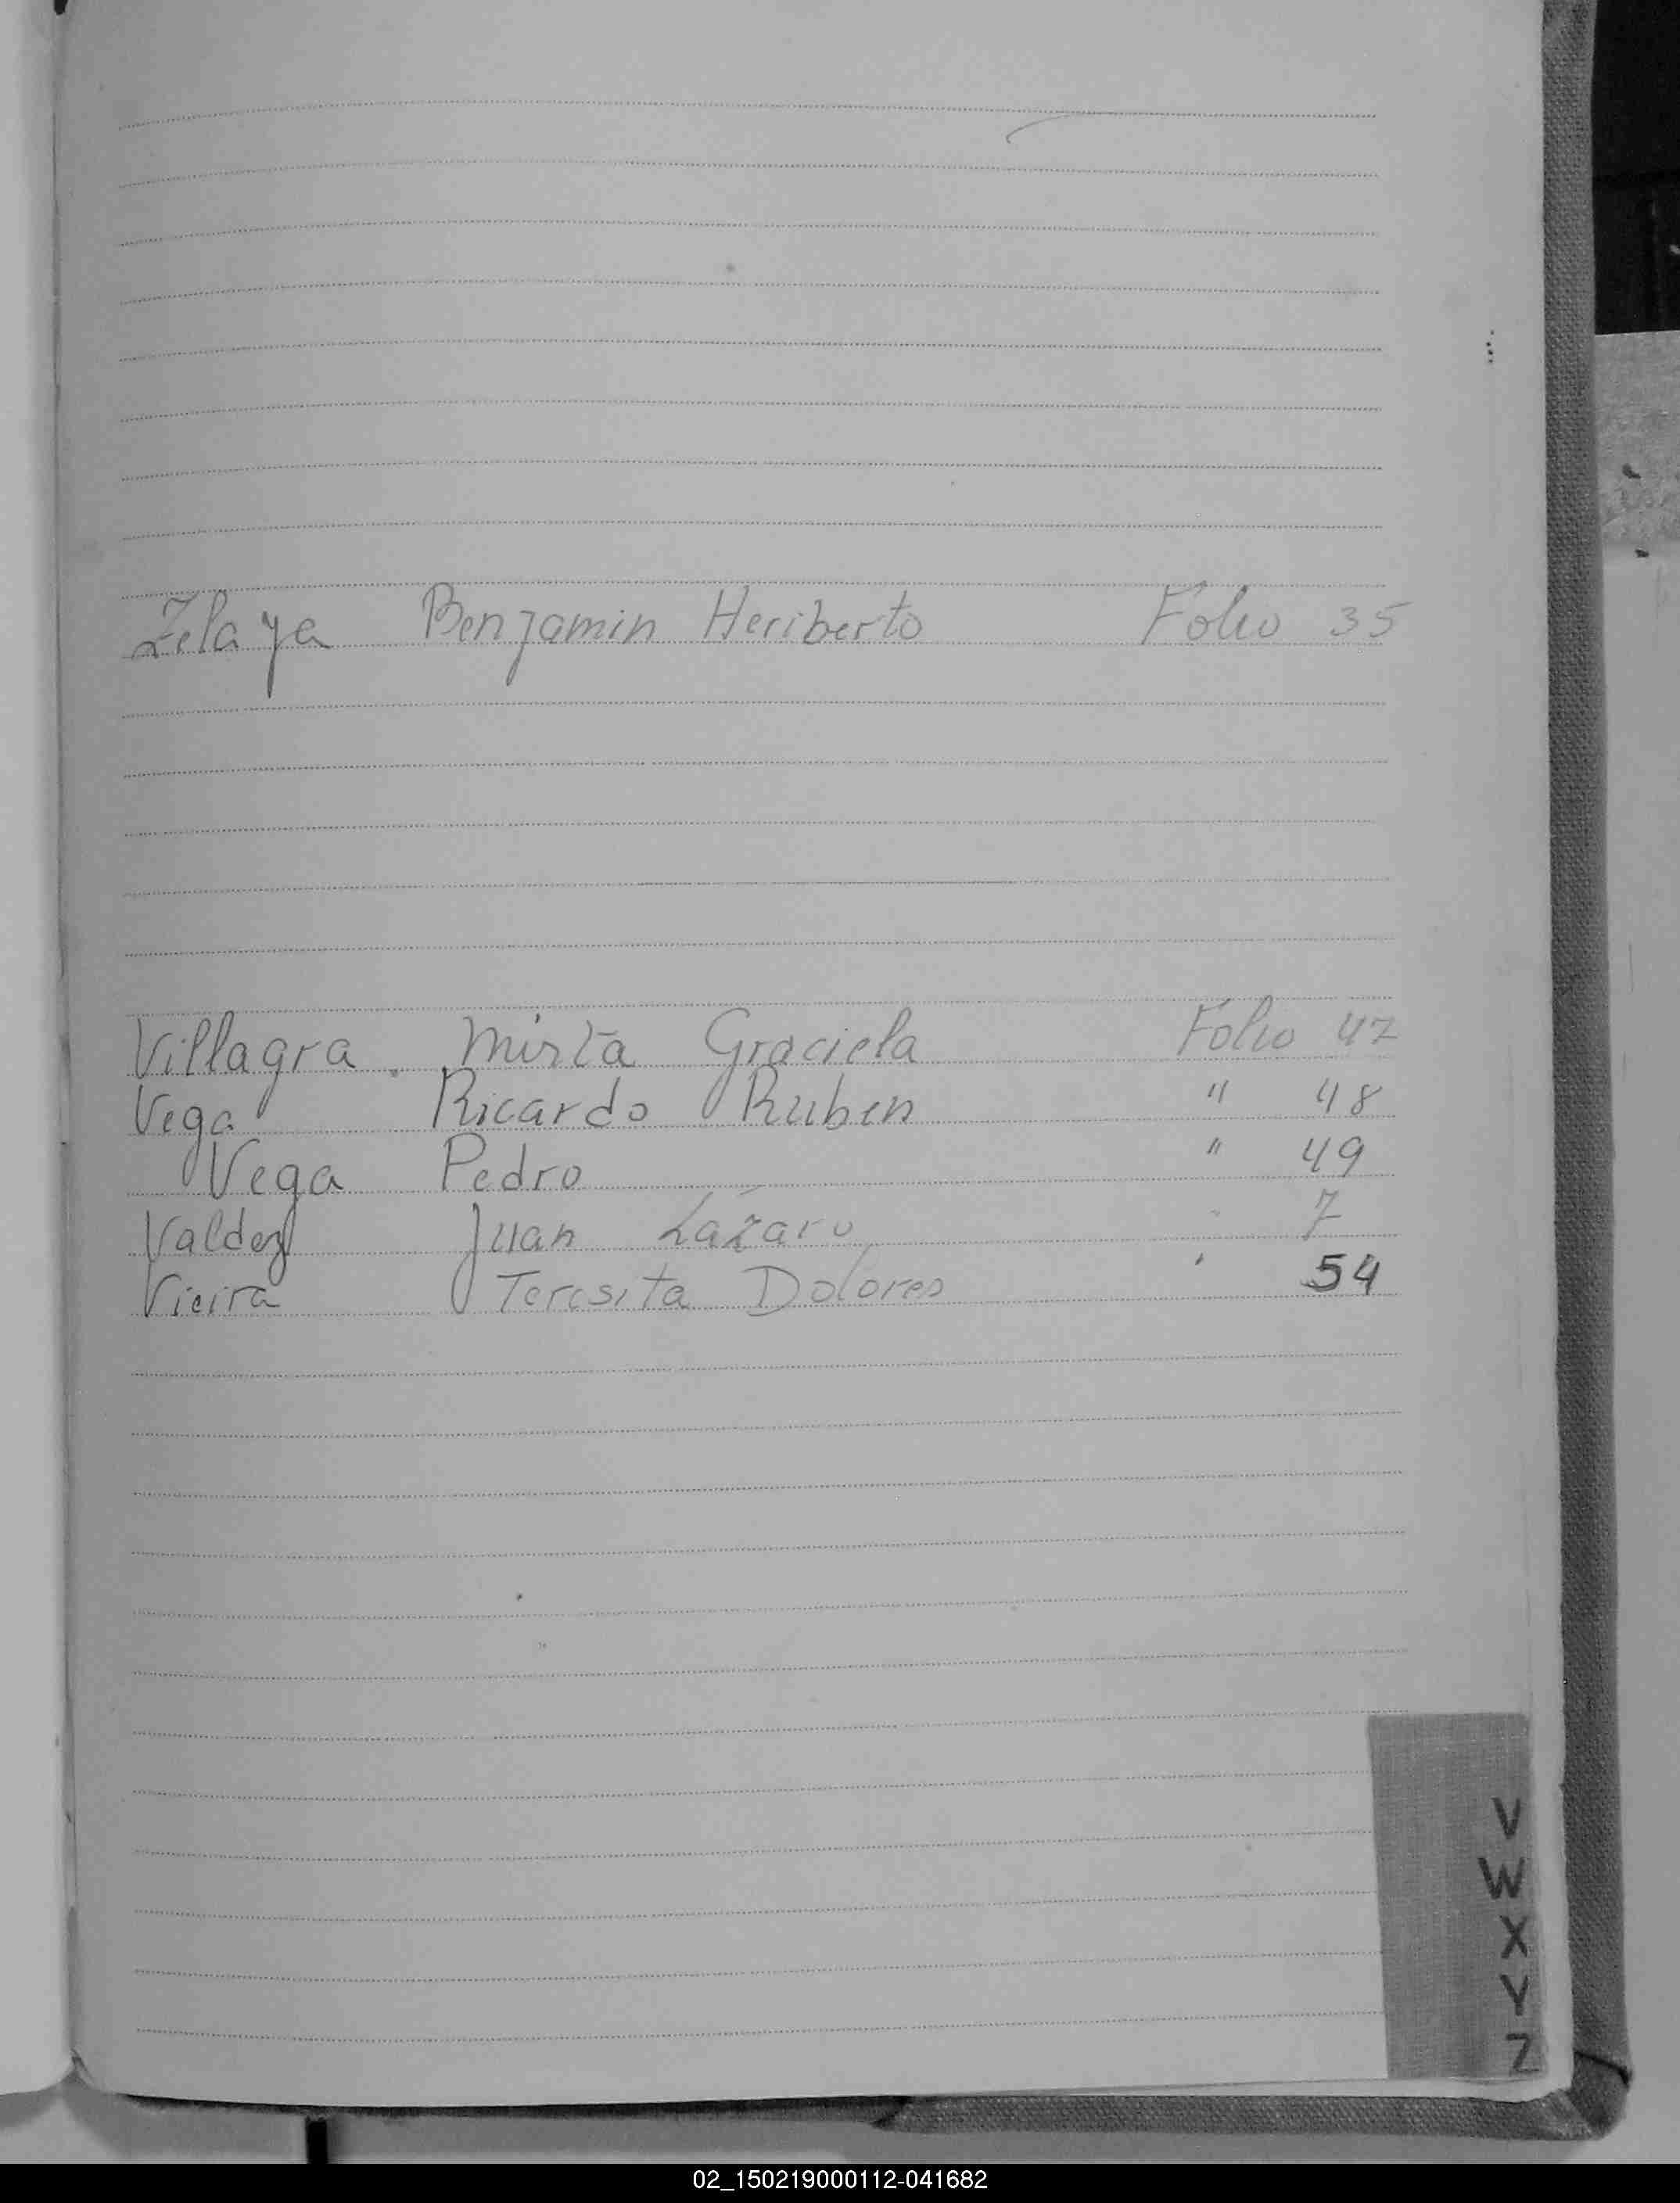 Zelaya Benjamin Heriberto Folio 35
Villagra. Mirta Graciela Folio 42
Vega Ricardo Ruben " 48
Vega Pedro " 49
Valdez Juan Lázaro " 7
Vieira Teresita Dolores ' 54
V
W
X
Y
Z
02_150219000112-041682